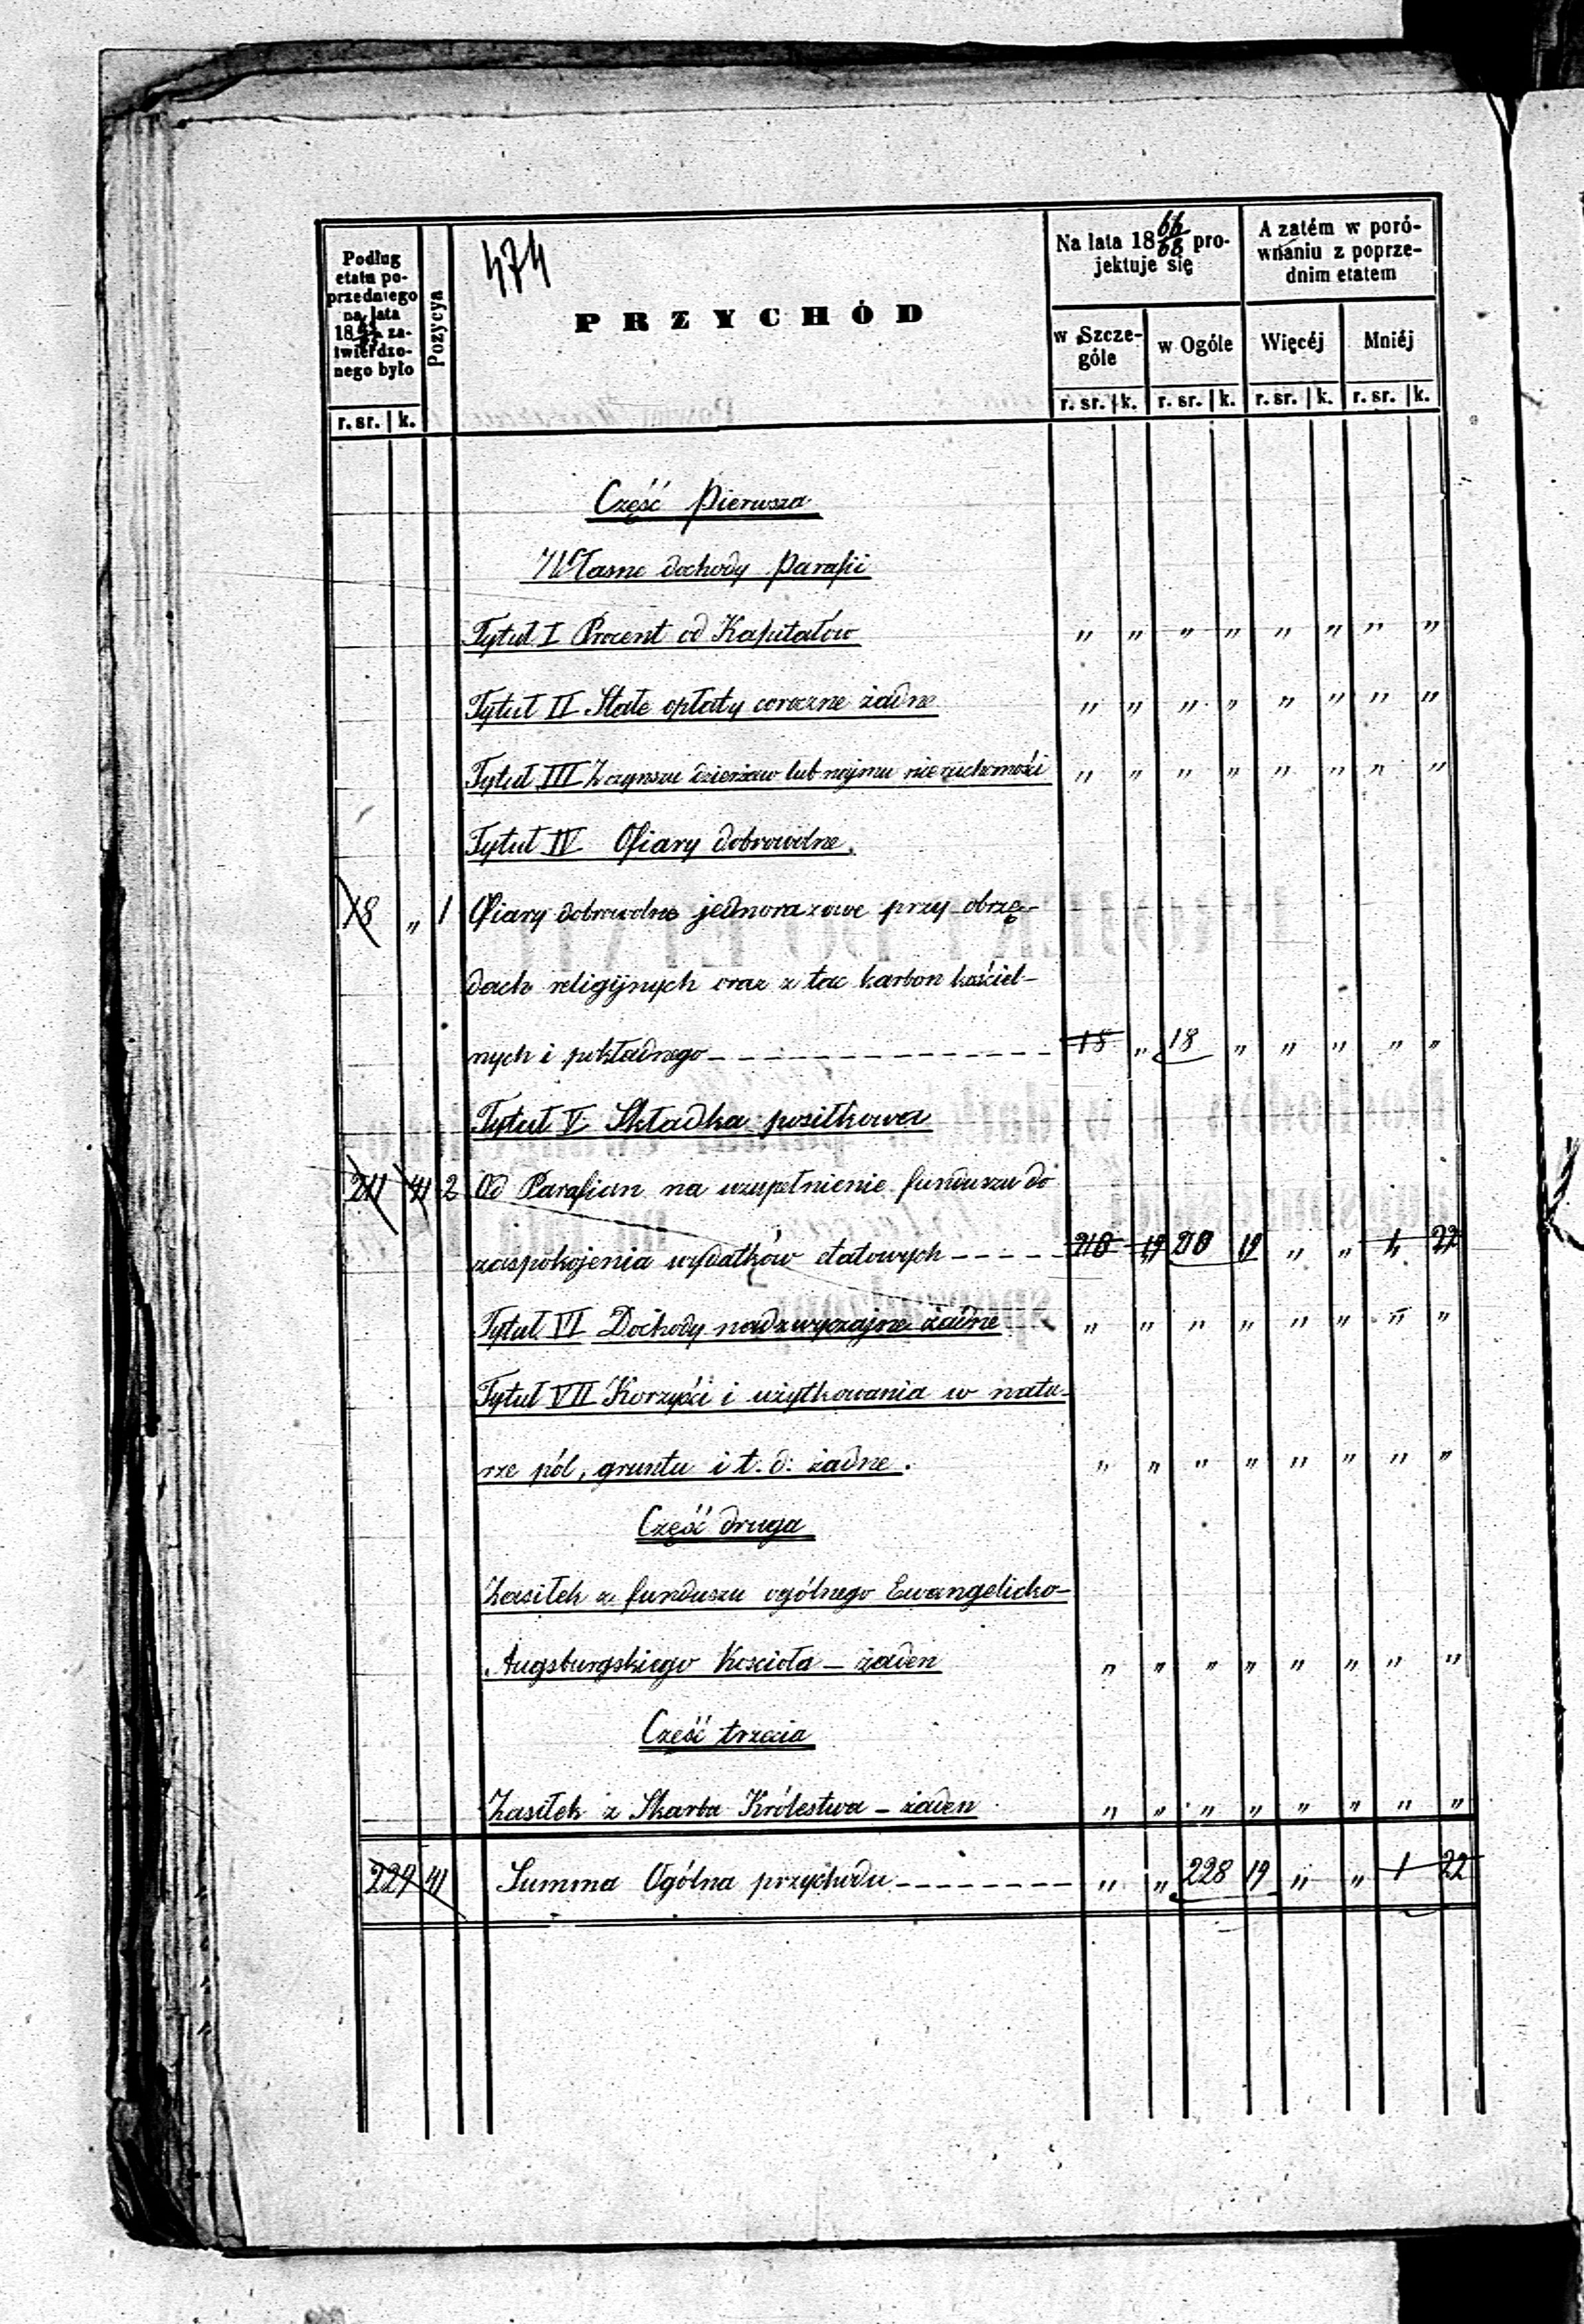 474
Podług
etatu po-
przedniego
na lata
18 za-
twierdzo-
nego było
Pozycya
PRZYCHÓD
Na lata 18 66/68 pro-
jektuje się
A zatém w poró-
wnaniu z poprze-
dnim etatem
w Szcze-
góle
w Ogóle
Więcéj
Mniéj
r. sr. k. r. sr. k. r. sr. k. r. sr. k. r. sr. k.
Część Pierwsza
Własne dochody Parafii
Tytuł I Procent od Kapitałów " " " " " " " "
Tytuł II Stałe opłaty coroczne żadne " " " " " " " "
Tytuł III Z czynszu dzierżaw lub najmu nieruchomości " " " " " " " "
Tytuł IV Ofiary dobrowolne.
18 " 1 Ofiary dobrowolne jednorazowe przy obrzę-
dach religijnych oraz z tac karbon kościel-
nych i pokładnego 18 " 18 " " " " "
Tytuł V Składka posiłkowa
211 41 2 Od Parafian na uzupełnienie funduszu do
zaspokojenia wydatków etatowych 210 19 210 19 " " 1 22
Tytuł VI Dochody nadzwyczajne żadne " " " " " " " "
Tytuł VII Korzyści i użytkowania w natu-
rze pól, gruntu i t. d: żadne. " " " " " " " "
Część druga
Zasiłek z funduszu ogólnego Ewangelicko-
Augsburgskiego Kościoła – żaden " " " " " " " "
Cześć trzecia
Zasiłek z Skarba Królestwa – żaden " " " " " " " "
229 41 Summa Ogólna przychodu " " 228 19 " " 1 22